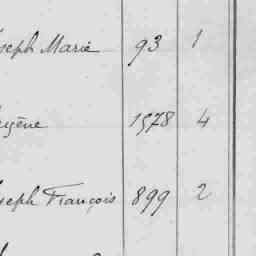 Joseph Marie 93 1
Eugène 1578 4
Joseph François 899 2